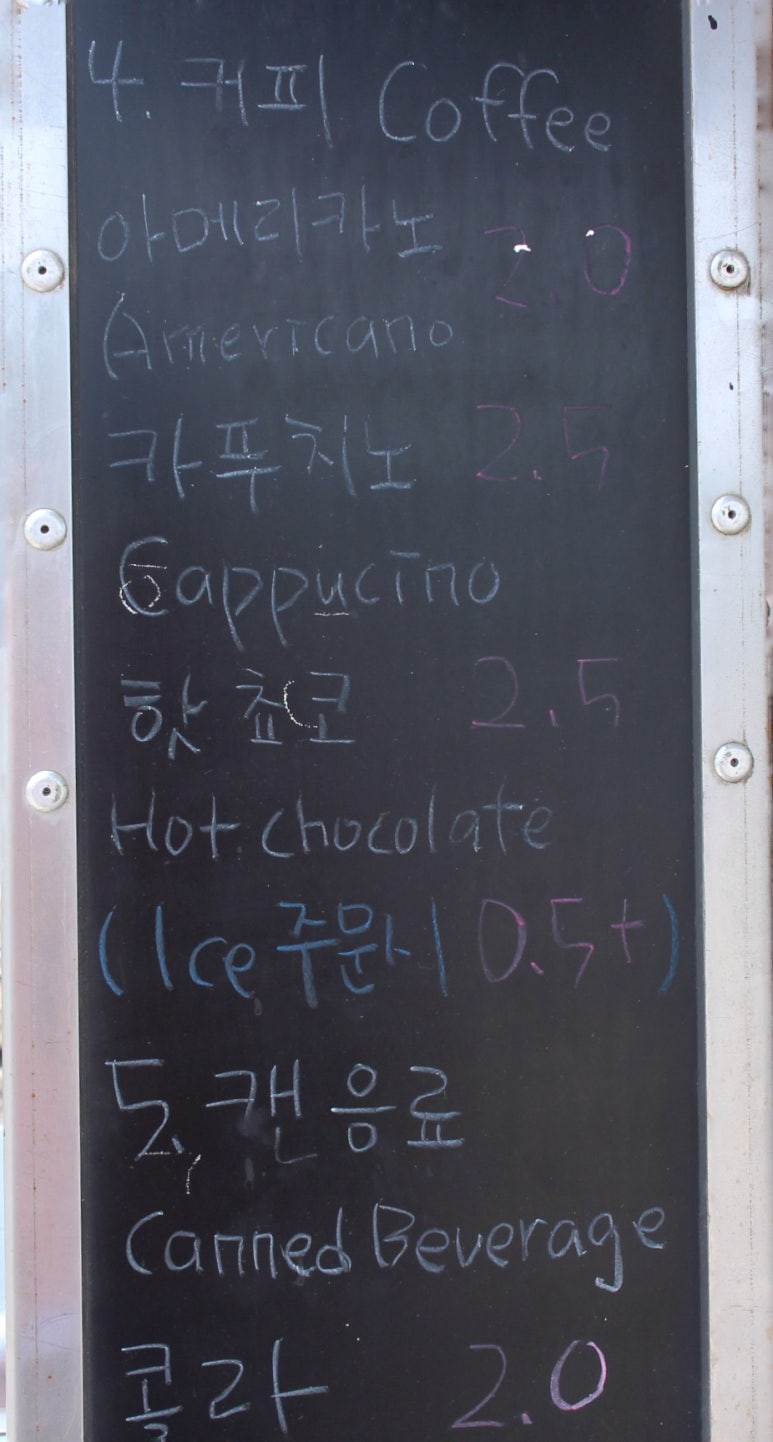 4. 커피 Coffee
아메리카노 2.0
Americano
카푸치노 2.5
Cappucino
핫 쵸코 2.5
Hot chocolate
(Ice 주문시 0.5+)
5. 캔 음료
Canned Beverage
콜라 2.0